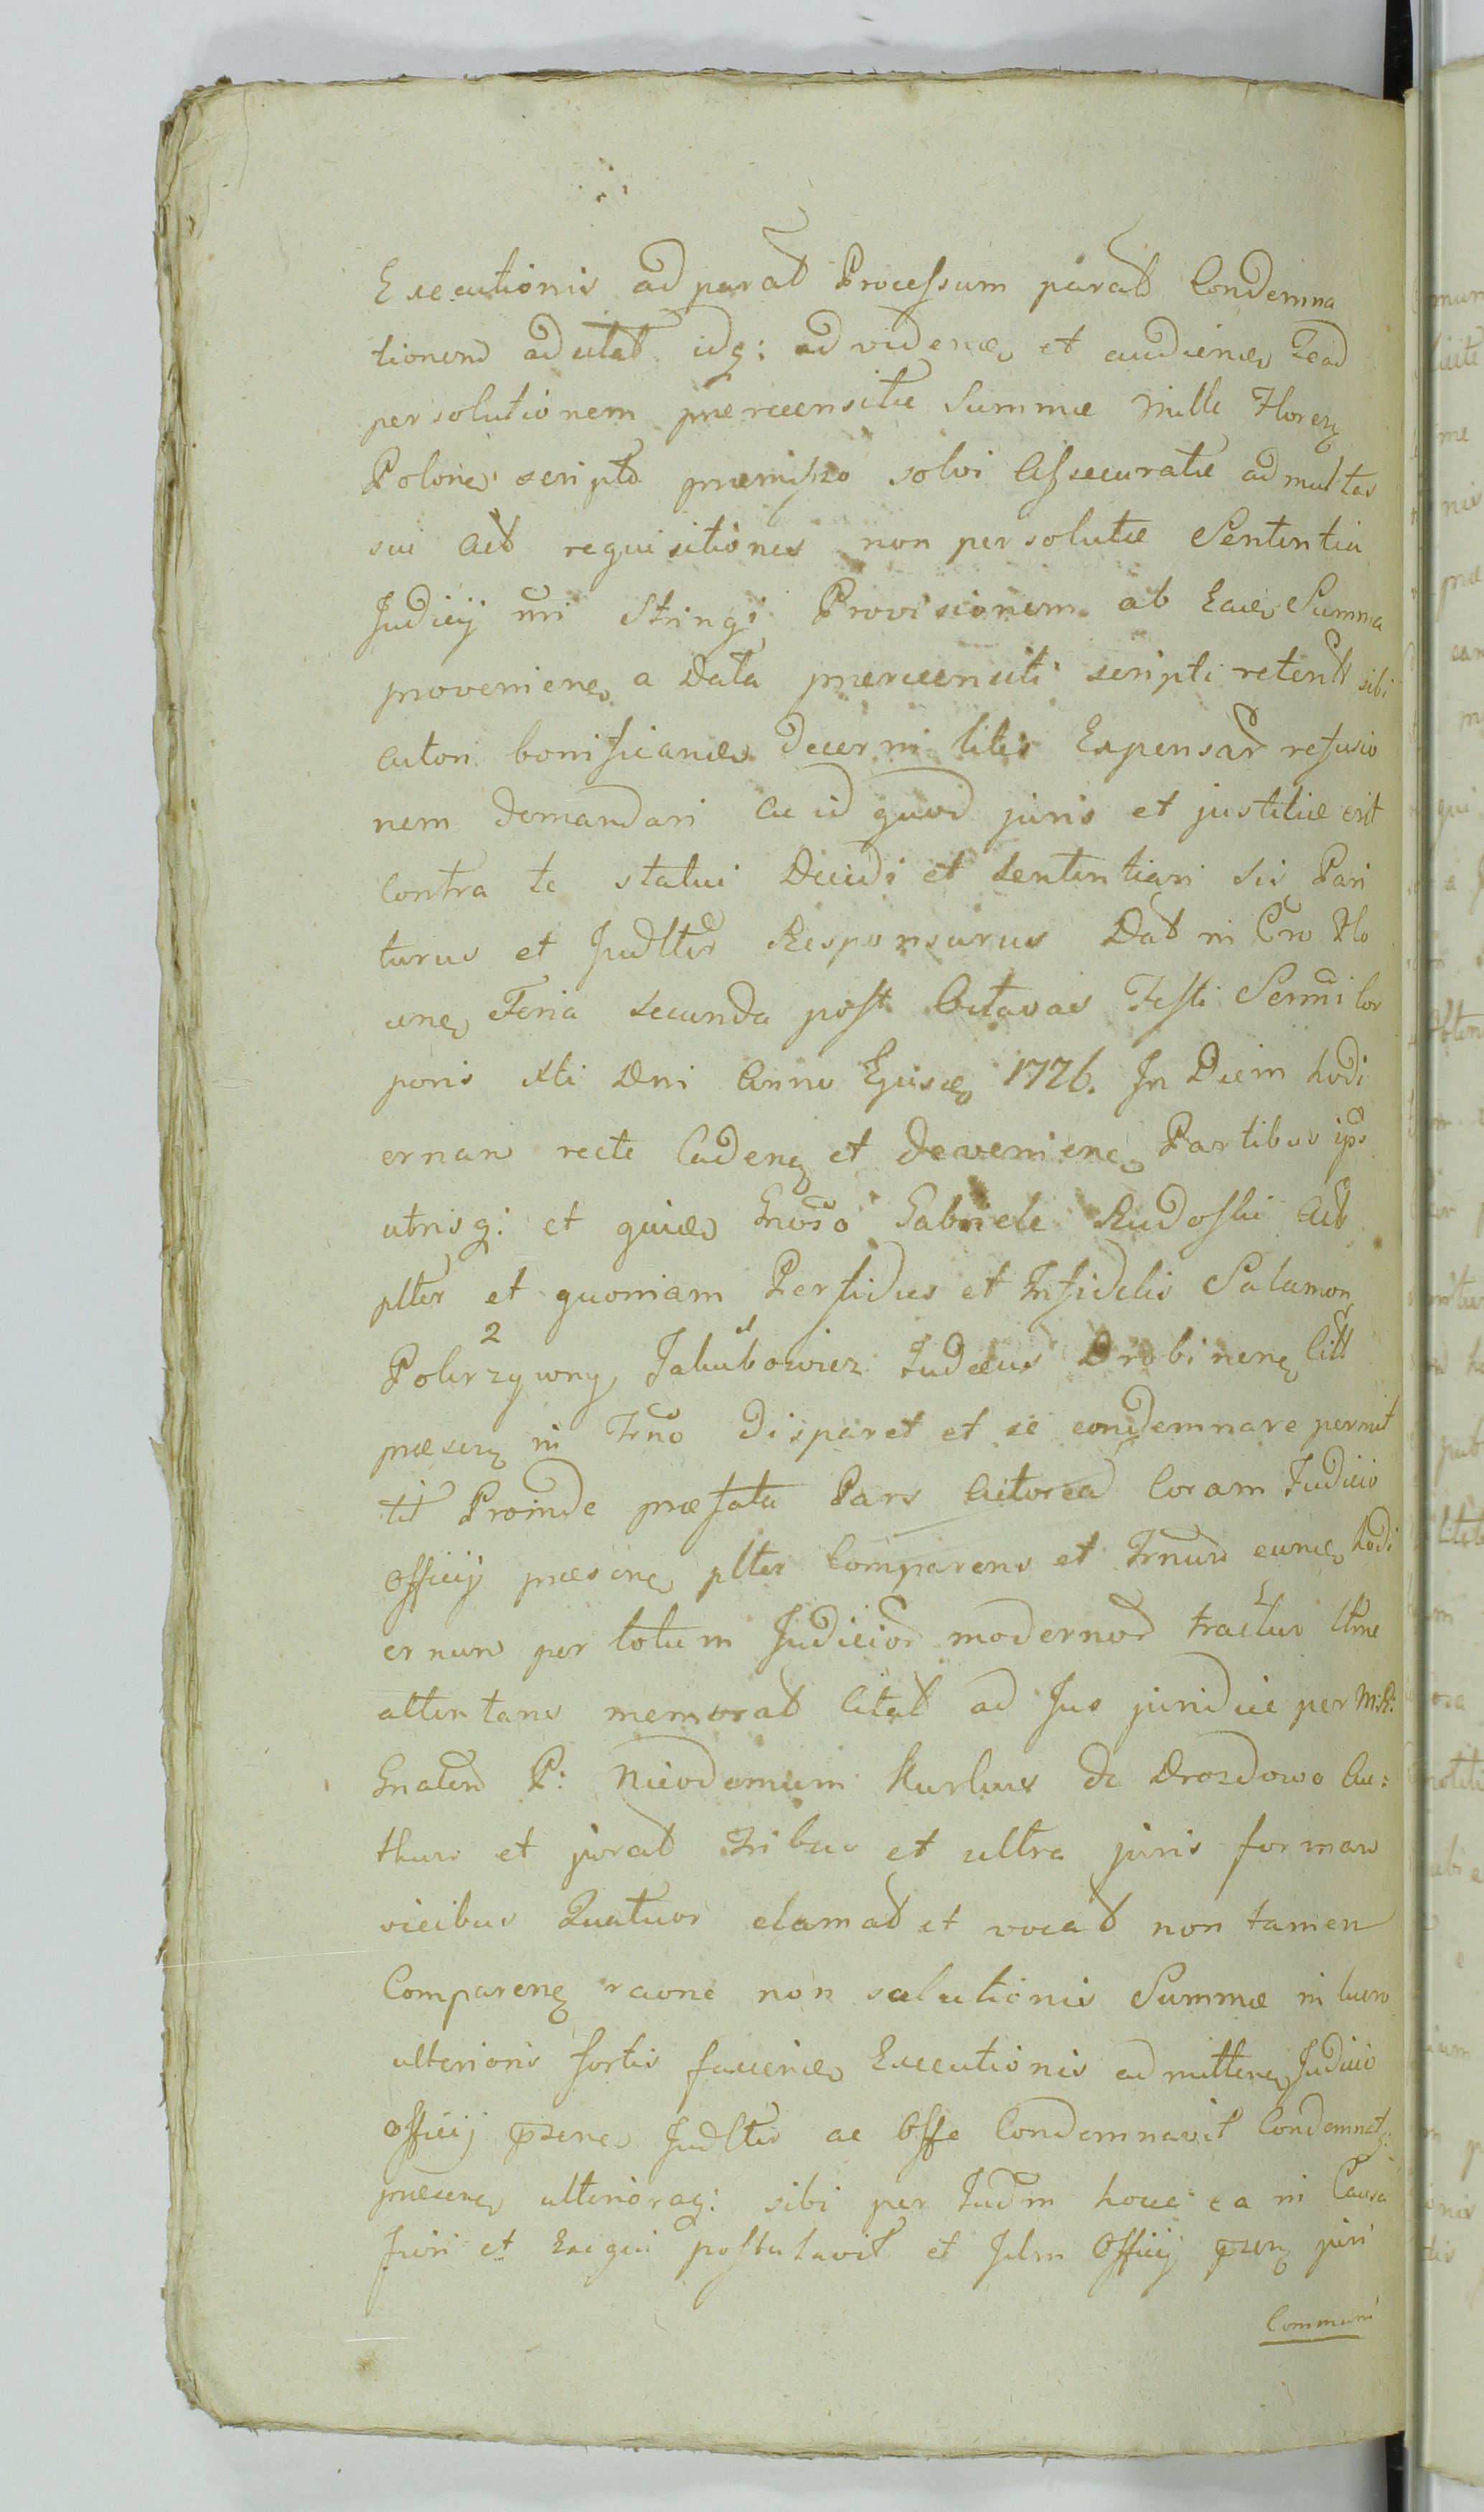 Executionis ad parat Processum parat Condemna
tionem ad utat idq: ad videnď et audienď Te ad
persolutionem præreconsitæ Summæ Mille Floreñ
Polonč scripto præmisso solvi Assecuratæ ad multas
sui Act requisitiones non persolutæ Sententia
Judicij nri Stringi Provisionem ab Eadď Summa
provenienč a Data præreconsiti scripti retent sibi
Actori bonificanď Decerni litis Expensar refusio
nem Demandari ac id quod juris et justitiæ erit
Contra te statui Decidi et Sententiari sis Pari
turus et Judltr Responsurus Dat in Cro Plo
cenč Feria Secunda post Octavas Festi Sermi Cor
poris Xti Dni Anno Ejusď 1726. In Diem hodi
ernam recte Cadenč et Devenienč Partibus ips
utrisq: et quidď Gnoso Gabriele Rudoski Act
plter et quoniam Perfidus et Infidelis Salamon
Pokrzywny 2 Jakubowicz 1 Judæus Drobinenč Citt
præsenč in Trno Disparet et se condemnare permit
tit Proinde præfata Pars Actorea Coram Judicio
Officij præsenč plter Comparens et Trnum eunď hodi
ernum per totum Judicior modernor tractus ltme
attentans memorat Citat ad Jus juridice per M.R.
Gnalem P: Nicodemum Kurkus de Drozdowo Au:
thum et jurat Tribus et ultra juris formam
vicibus Quatuor clamat et vocat non tamen
Comparenč raone non solutionis Summæ in lucro
ulterioris sortis faciend Executionis admittenď Judicio
Officij præsenč Judltr ac Offe Condemnavit Condemnatq:
præsenč ulterioraq: sibi per Judm hocce ea in Causa
fieri et Exequi postulavit et Jdm Officij præsenč juri
Communi